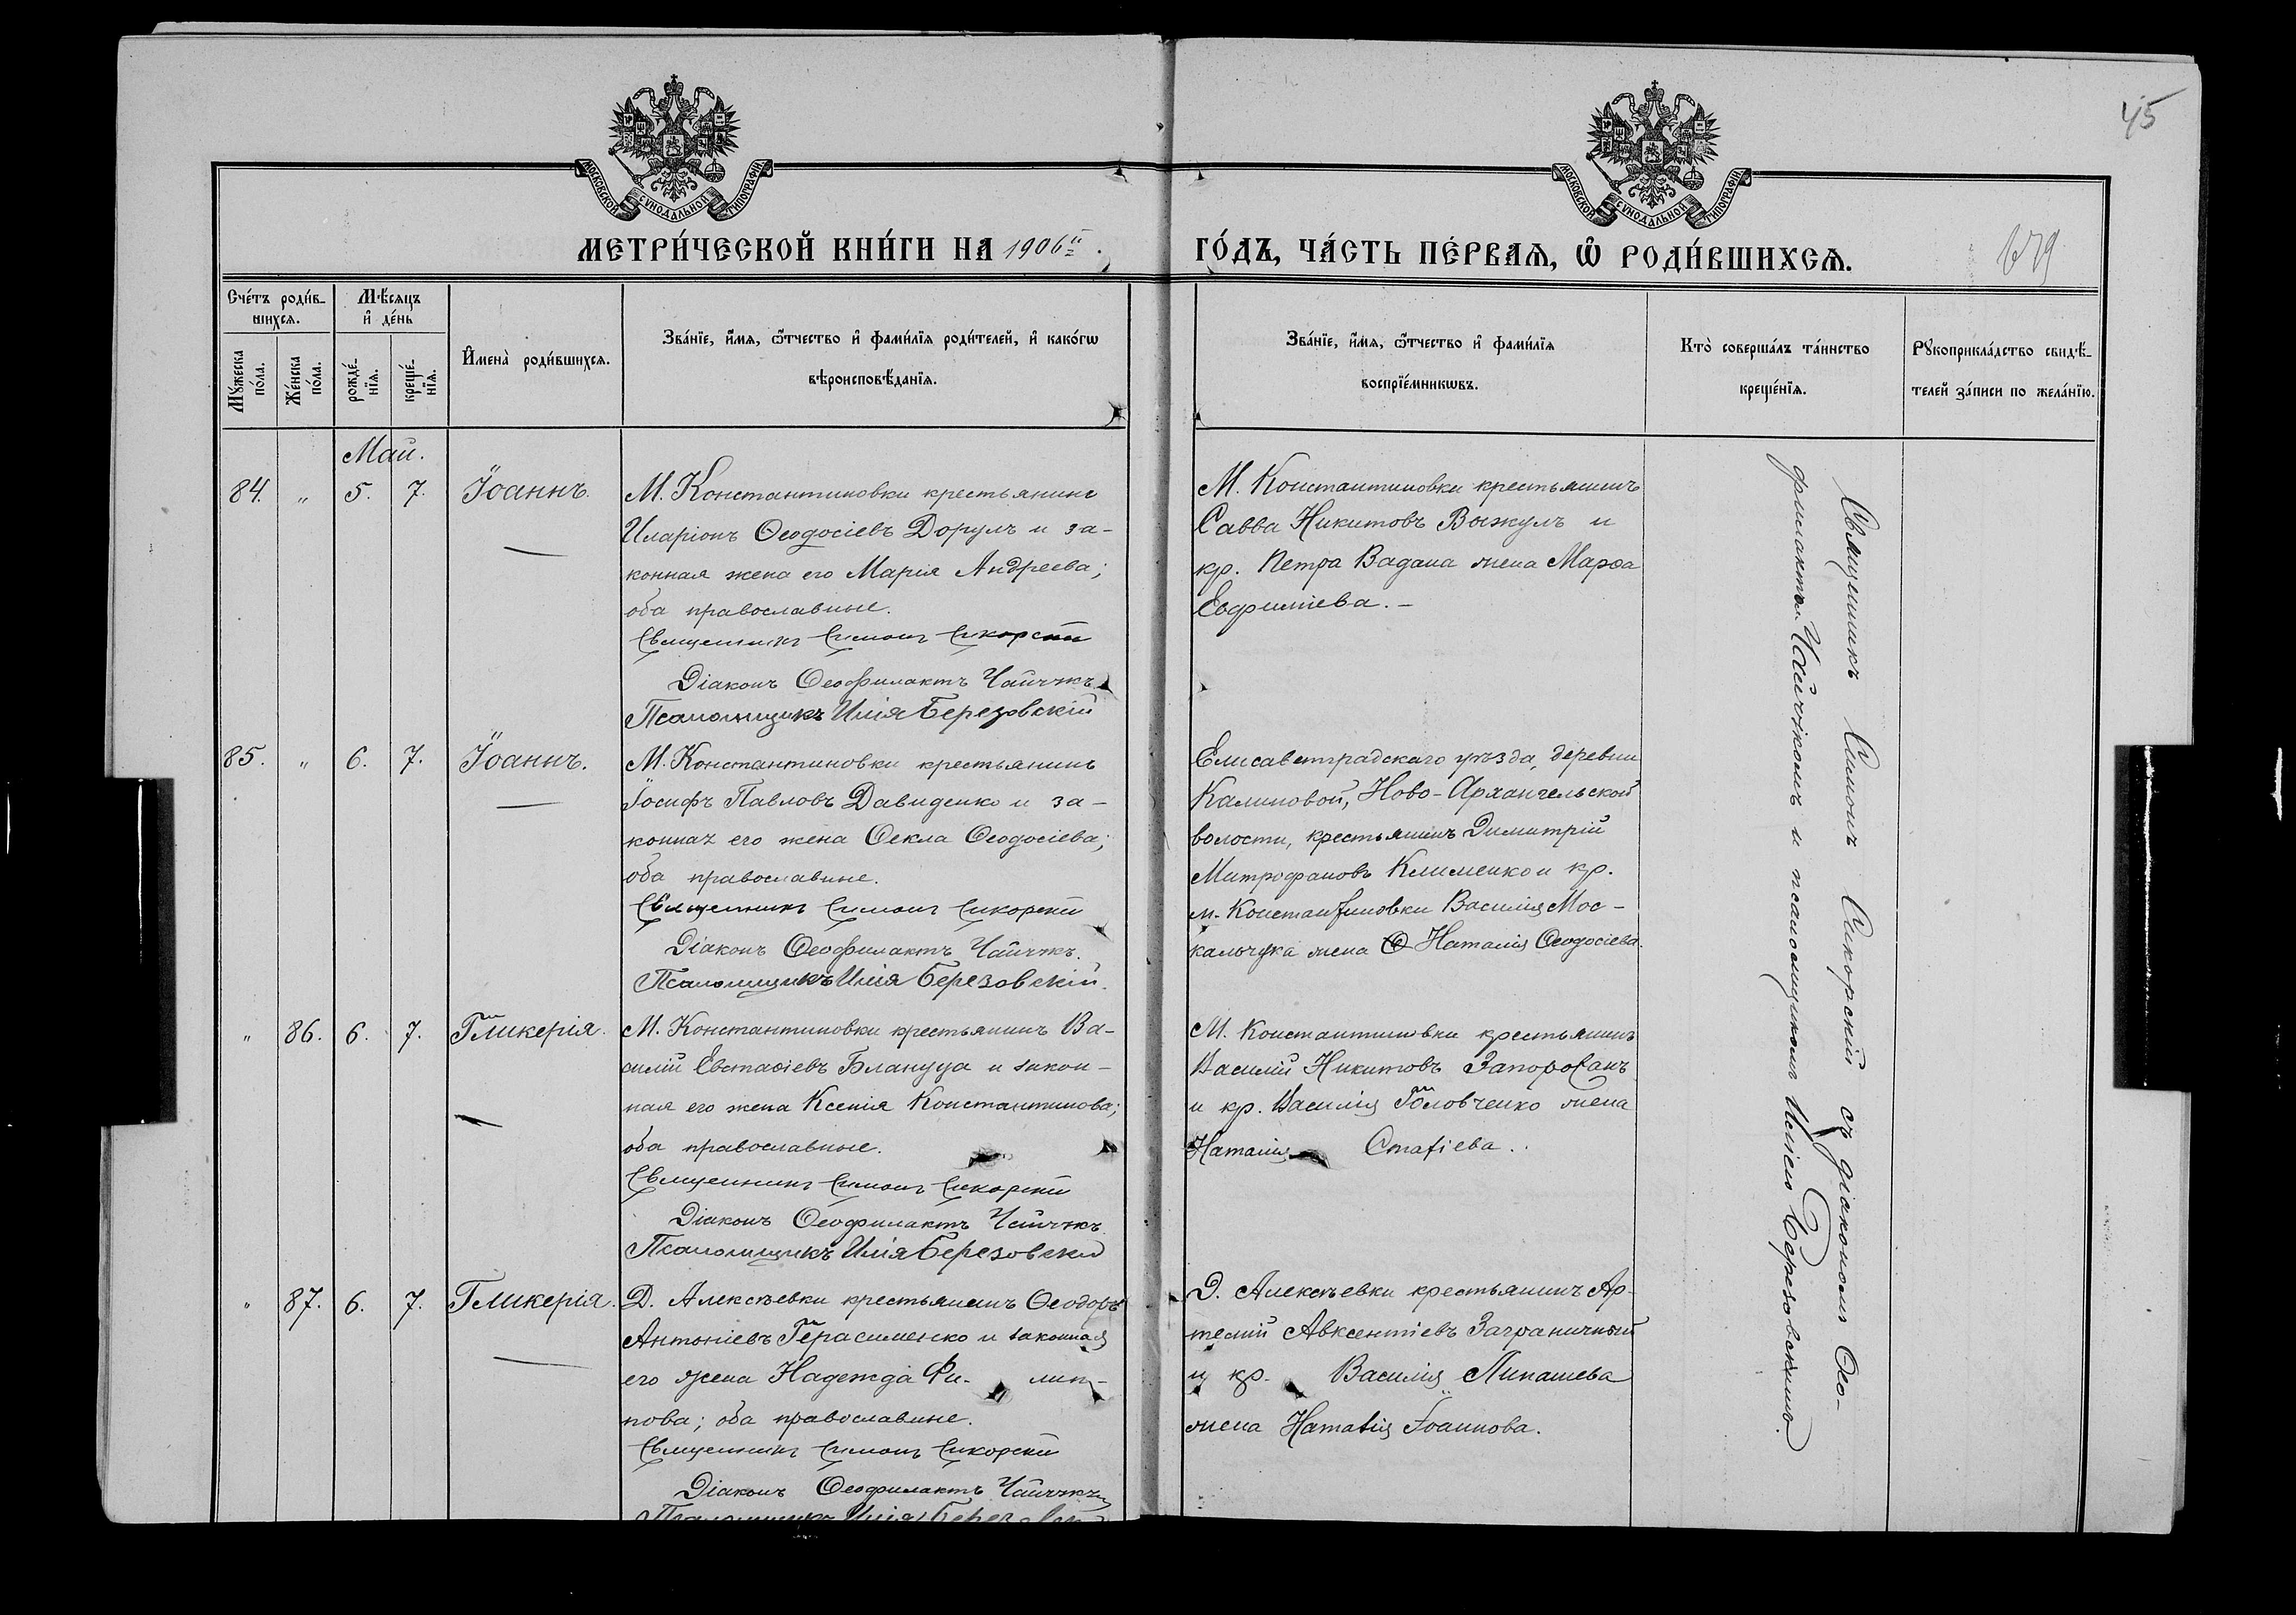 45
МОСКОВСКОЙ СУНОДАЛЬНОЙ ТИПОГРАФІИ
МОСКОВСКОЙ СУНОДАЛЬНОЙ ТИПОГРАФІИ
МЕТРИ́ЧЕСКОЙ КНИ́ГИ НА 1906й.
ГО́ДЪ, ЧА́СТЬ ПЕ́РВАѦ, Ѿ РОДИ́ВШИХСѦ.
Сче́тъ роди́в-
шихсѧ.
Мѣ́сѧцъ
и҆ де́нь
Мꙋ́жеска
по́ла.
Же́нска
по́ла.
рожде́-
нїѧ.
креще́-
нїѧ.
И҆мена̀ роди́вшихсѧ.
Зва́нїе, и҆́мѧ, ѻ҆́тчество и҆ фами́лїѧ роди́телей, и҆ како́гѡ
вѣроисповѣ́данїѧ.
Зва́нїе, и҆́мѧ, ѻ҆́тчество и҆ фами́лїѧ
воспрїе́мникѡвъ.
Кто̀ соверша́лъ та́инство
креще́нїѧ.
Рꙋкоприкла́дство свидѣ́-
телей за́писи по жела́нїю.
Май.
84. " 5. 7. Іоаннъ.
М. Константиновки крестьянинъ
Иларіонъ Ѳеодосіевъ Дорулъ и за-
конная жена его Марія Андреева;
оба православные.
Священникъ Симонъ Сикорскій
Діаконъ Ѳеофилактъ
Псаломщикъ Илія Березовскій
М. Константиновки крестьянинъ
Савва Никитовъ Выжулъ и
кр. Петра Вадана жена Марѳа
Евфиміева.-
85. " 6. 7. Іоаннъ.
М. Константиновки крестьянинъ
Іосифъ Павловъ Давиденко и за-
конная его жена Ѳекла Ѳеодосіева;
оба православные.
Священникъ Симонъ Сикорскій
Діаконъ Ѳеофилактъ
Псаломщикъ Илія Березовскій.
Елисаветградскаго уѣзда, деревни
Калиновой, Ново-Архангельской
волости, крестьянинъ Димитрій
Митрофановъ Клименко и кр.
м. Константиновки Василія Мос-
кальчука жена Наталія Ѳеодосіева.
" 86. 6. 7. Гликерія.
М. Константиновки крестьянинъ Ва-
силій Евстафіевъ Блануца и закон-
ная его жена Ксенія Константинова;
оба православные.
Священникъ Симонъ Сикорскій
Діаконъ Ѳеофилактъ
Псаломщикъ Илія Березовскій
М. Константиновки крестьянинъ
Василій Никитовъ Запорожанъ
и кр. Василія Головченко жена
Наталія Стафіева.
" 87. 6. 7. Гликерія.
Д. Алексѣевки крестьянинъ Ѳеодоръ
Антоніевъ Герасименко и законная
его жена Надежда Фи- лип-
пова; оба православные.
Священникъ Симонъ Сикорскій
Діаконъ Ѳеофилактъ
Псаломщикъ Илія
Д. Алексѣевки крестьянинъ Ар-
темій Авксентіевъ Заграничный
и кр. Василія Липашева
жена Наталія Іоаннова.
Священникъ Симонъ Сикорскій съ діакономъ Ѳео-
филактомъ и псаломщикомъ Иліею Березовскимъ.